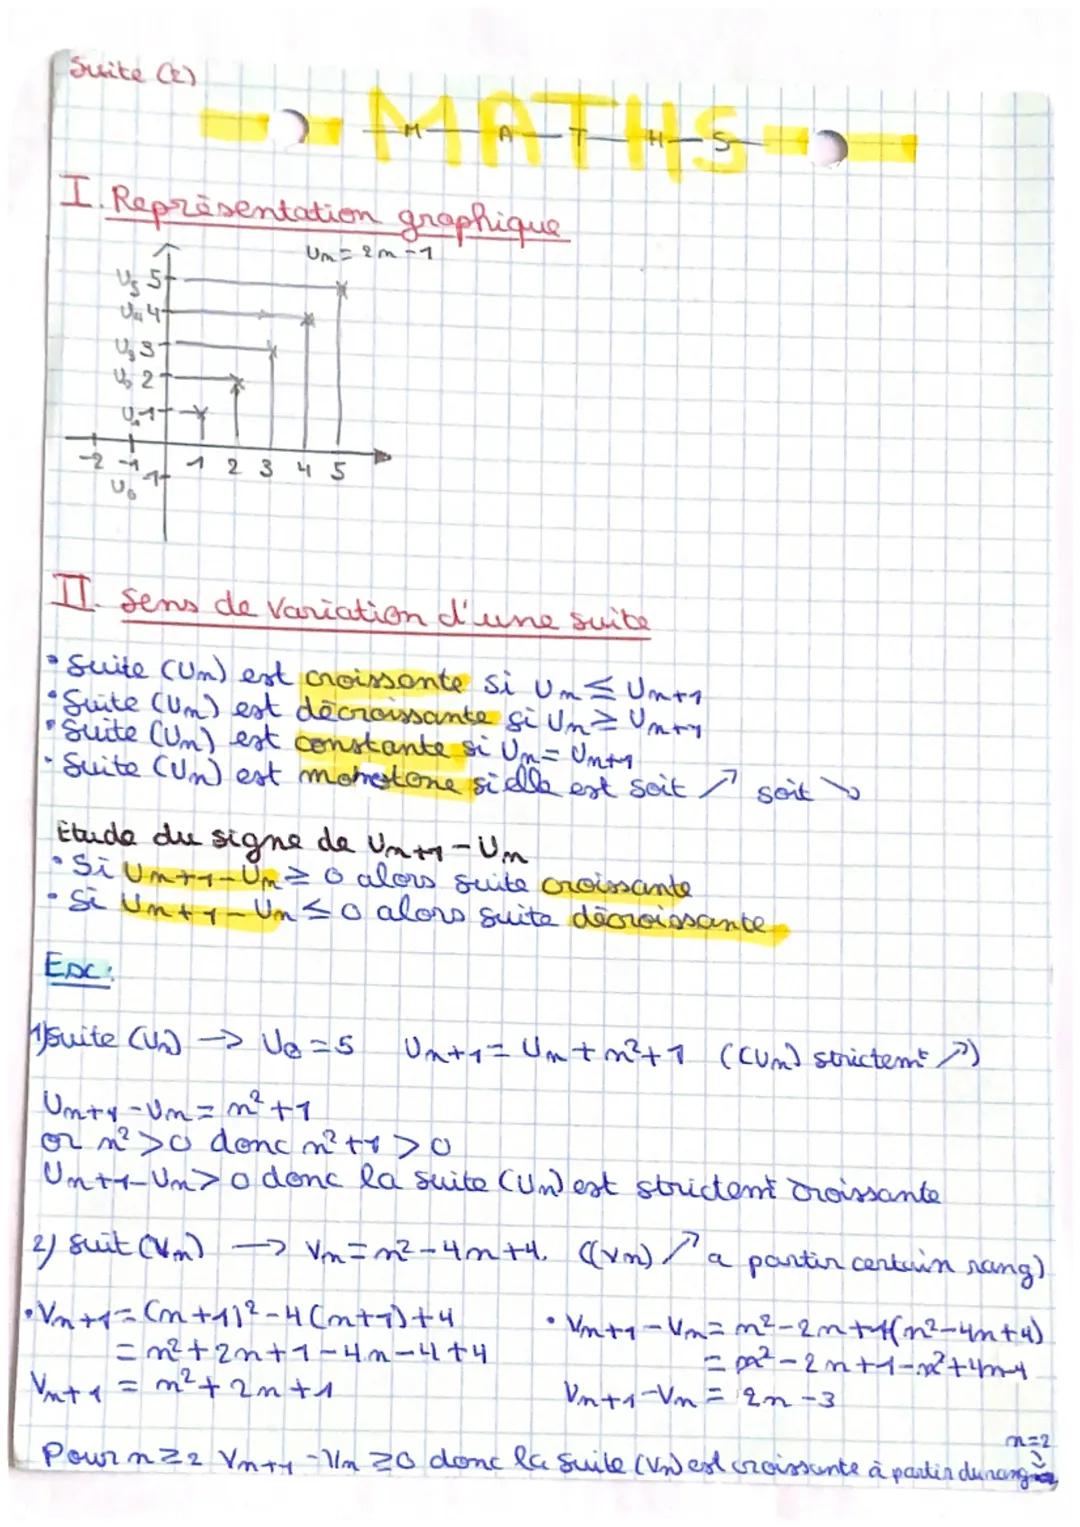 Suite (2)
MATHS
M A T H S
I. Représentation graphique
Un = 2n-1
U5 5
U4 4
U3 3
U2 2
U1 1
-2 -1 1 2 3 4 5
U0 -1
II. Sens de variation d'une suite
• Suite (Un) est croissante si Un ≤ Un+1
• Suite (Un) est décroissante si Un ≥ Un+1
• Suite (Un) est constante si Un = Un+1
• Suite (Un) est monotone si elle est soit ↗ soit ↘
Etude du signe de Un+1 - Un
• Si Un+1-Un ≥ 0 alors suite croissante
• Si Un+1-Un ≤ 0 alors suite décroissante
Exc:
1) suite (Un) → U0 = 5 Un+1 = Un + n²+1 ((Un) strictemt ↗)
Un+1-Un = n²+1
or n² > 0 donc n²+1 > 0
Un+1-Un > 0 donc la suite (Un) est strictemt croissante
2) suit (Vn) → Vn = n²-4n+4. ((Vn) ↗ a partir certain rang)
• Vn+1 = (n+1)²-4(n+1)+4
= n²+2n+1-4n-4+4
Vn+1 = n²+2n+1
• Vn+1-Vn = n²-2n+1-(n²-4n+4)
= n²-2n+1-n²+4n-4
Vn+1-Vn = 2n-3
Pour n ≥ 2 Vn+1-Vn ≥ 0 donc la suite (Vn) est croissante à partir du rang n=2